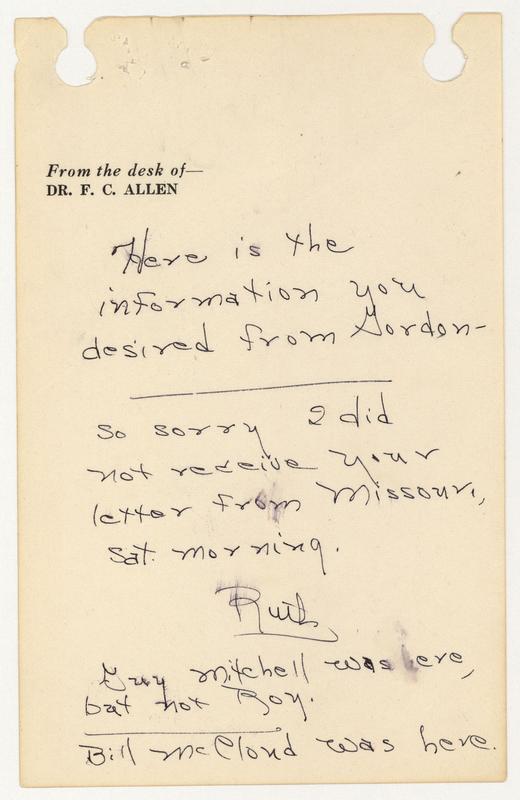 From the desk of—
DR. F. C. ALLEN
Here is the
information you
desired from Gordon-
So sorry I did
not receive your
letter from Missouri,
Sat. morning.
Ruth
Guy Mitchell was here,
but not Roy.
Bill McCloud was here.